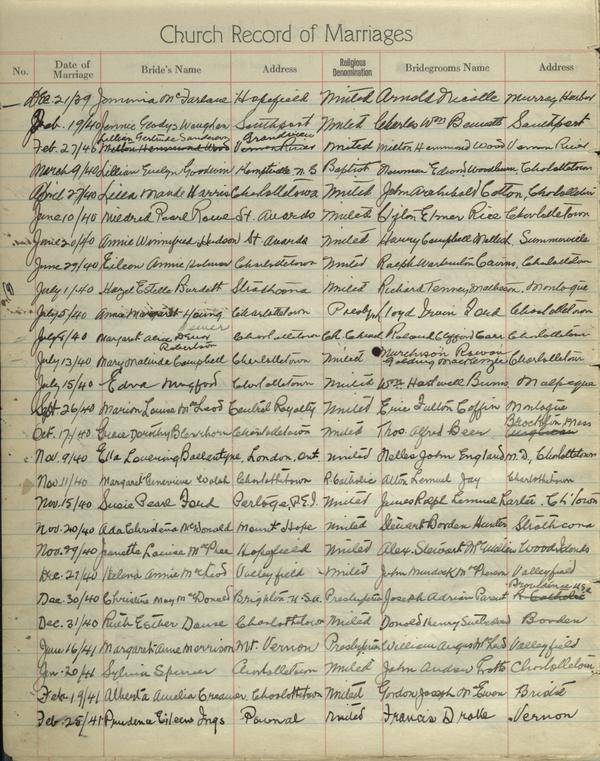 Church Record of Marriages
No. Date of Marriage Bride's Name Address Religious Denomination Bridegrooms Name Address
Dec. 21/39 Jemima McFarlane Hopefield United Arnold Murray Harbor
Feb. 19/40 Jennie Gladys Southport United Charles Wm Bennett Southport
Lillian Gertrude Brandywine
Feb. 27/40 Vernon River United Milton Hammond Wood Vernon River
March 9/40 Lillian Evelyn Goodwin N.S. Baptist Edison Woodburn Charlottetown
April 27/40 Lilla Maude Harris Charlottetown United John Archibald Cotton, Charlottetown
June 10/40 Mildred Pearl Rowe St. Avards United Elmer Rice Charlottetown
June 20/40 Annie Winnifred Hudson St Avards United Harry Campbell Summerville
June 29/40 Eileen Annie Charlottetown United Ralph Warburton Cairns, Charlottetown
July 1/40 Hazel Estelle Burdett Strathcona United Richard Tenney Matheson, Montague
July 5/40 Annie Margaret Charlottetown Presbyn Lloyd Irwin Ford Charlottetown
July 6/40 Margaret Charlottetown Ch. Roland Clifford Carr Charlottetown
Robertson Murchison
July 13/40 Mary Malinda Campbell Charlottetown United MacKenzie Charlottetown
July 15/40 Edna Mugford Charlottetown United Wm. Hartwell Burns Malpeque
Sept 26/40 Marion Louise McLeod Central Royalty United Eric Fulton Coffin Montague
Brockton, Mass
Oct. 17/40 Grace Dorothy Charlottetown United Thos. Alfred Beer
Nov. 9/40 Ella Lovering Ballantyne, London, Ont United John England M.D., Charlottetown
Nov 11/40 Margaret Genevieve Charlottetown R. Catholic Alton Lemuel Jay Charlottetown
Nov. 15/40 Susie Pearl Ford P.E.I. United James Ralph Lemuel Ch'town
Nov. 20/40 Ada Christena McDonald Mount Hope United Stewart Borden Hunter Strathcona
Nov. 29/40 Jeanette Louise McPhee Hopefield United Alex. Stewart McWilliams Woodislands
Dec. 21/40 Helena Annie McLeod Valleyfield United John Murdock McPherson Valleyfield
Providence USA
Dec. 30/40 Christine May McDonald Brighton U.S.A. Presbyterian Joseph Adrian Parent R. Catholic
Dec. 31/40 Ruth Esther Dawe Charlottetown United Donald Henry Borden
Jan 16/41 Margaret Anne Morrison Mt. Vernon Presbyterian William Angus McLeod Valleyfield
Jan. 20/41 Sylvia Spencer Charlottetown United John Charlottetown
Feb. 19/41 Alberta Amelia Creamer Charlottetown United Gordon Joseph McEwen Bristol
Feb. 25/41 Prudence Eileen Ings Pownal United Francis Drake Vernon